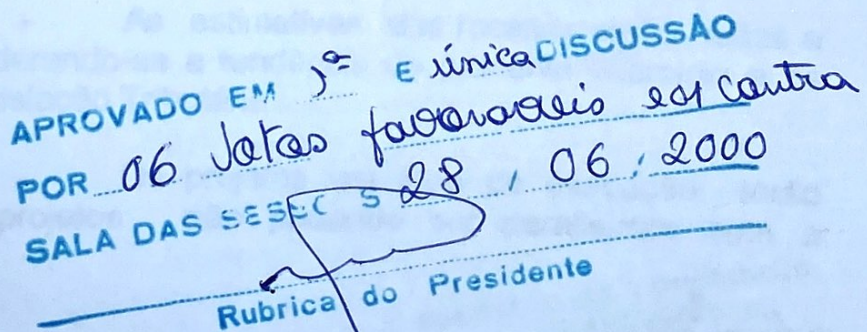 APROVADO EM 1ª E única DISCUSSÃO
POR 06 Votos favoraveis e 01 contra
SALA DAS SESSÕES 28 / 06 / 2000
Rubrica do Presidente